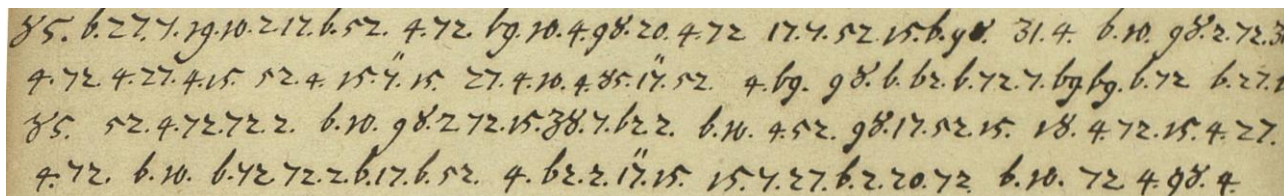 85. 6.27.7.19.10.2.17.6.52. 4.72. 69.10.4.98.20.4.72 17.7.52.15.6.98. 31.4. 6.10. 98.2.72.3
4.72.4.27.4.15 52.4. 15.7̈.15 27.4.10.4.85.1̈7.52. 4.69. 98.6.62.6.72.7.69 69.6.72 6.27.
85. 52.4.72.72.2. 6.10. 98.2 72.15.38.7.62 2. 6.10. 4.52. 98.17.52.15. 18.4.72.15.4.27.
4.72. 6.10. 6.72 72.2.6.17.6.52. 4.62.2.1̈7.15. 15.7.27.6.2.20.72. 6.10. 72 4.98.4